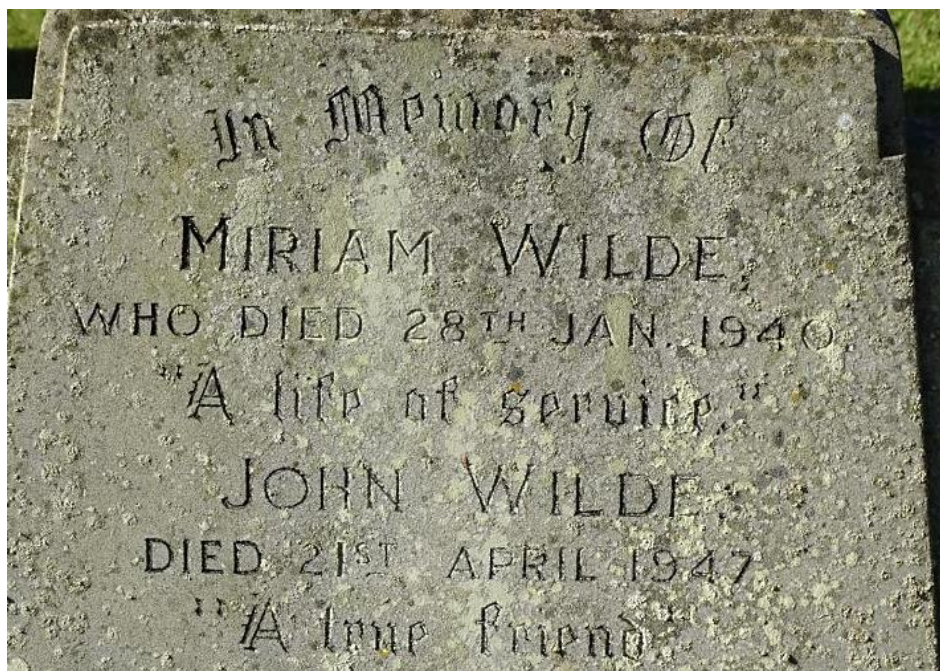 In Memory Of
MIRIAM WILDE,
WHO DIED 28TH JAN. 1940.
"A life of service."
JOHN WILDE.
DIED 21ST APRIL 1947
"A true friend"